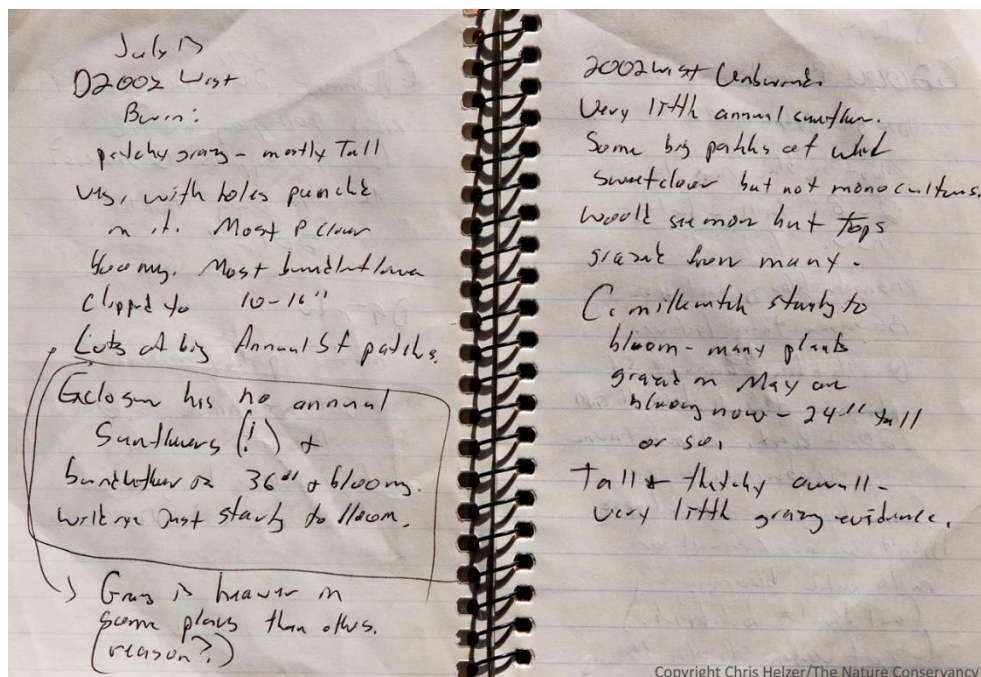 July 13
D2002 West
Burn:
patchy grazing - mostly Tall
veg, with holes punched
in it. Most P clover
blooming. Most bundleflower
clipped to 10-16"
Lots of big Annual SF patches.
Exclosure has no annual
Sunflowers (!) &
bundleflower is 36" & blooming.
wildrye Just starting to bloom.
Grazing is heavier in
some places than others.
(reason?)
2002 West Unburned.
Very little annual sunflower.
Some big patches of
sweetclover but not monocultures.
Would see more but Tops
grazed from many.
C. milkvetch starting to
bloom - many plants
grazed in May are
blooming now - 24" tall
or so.
Tall & thatchy overall -
very little grazing evidence.
Copyright Chris Helzer/The Nature Conservancy